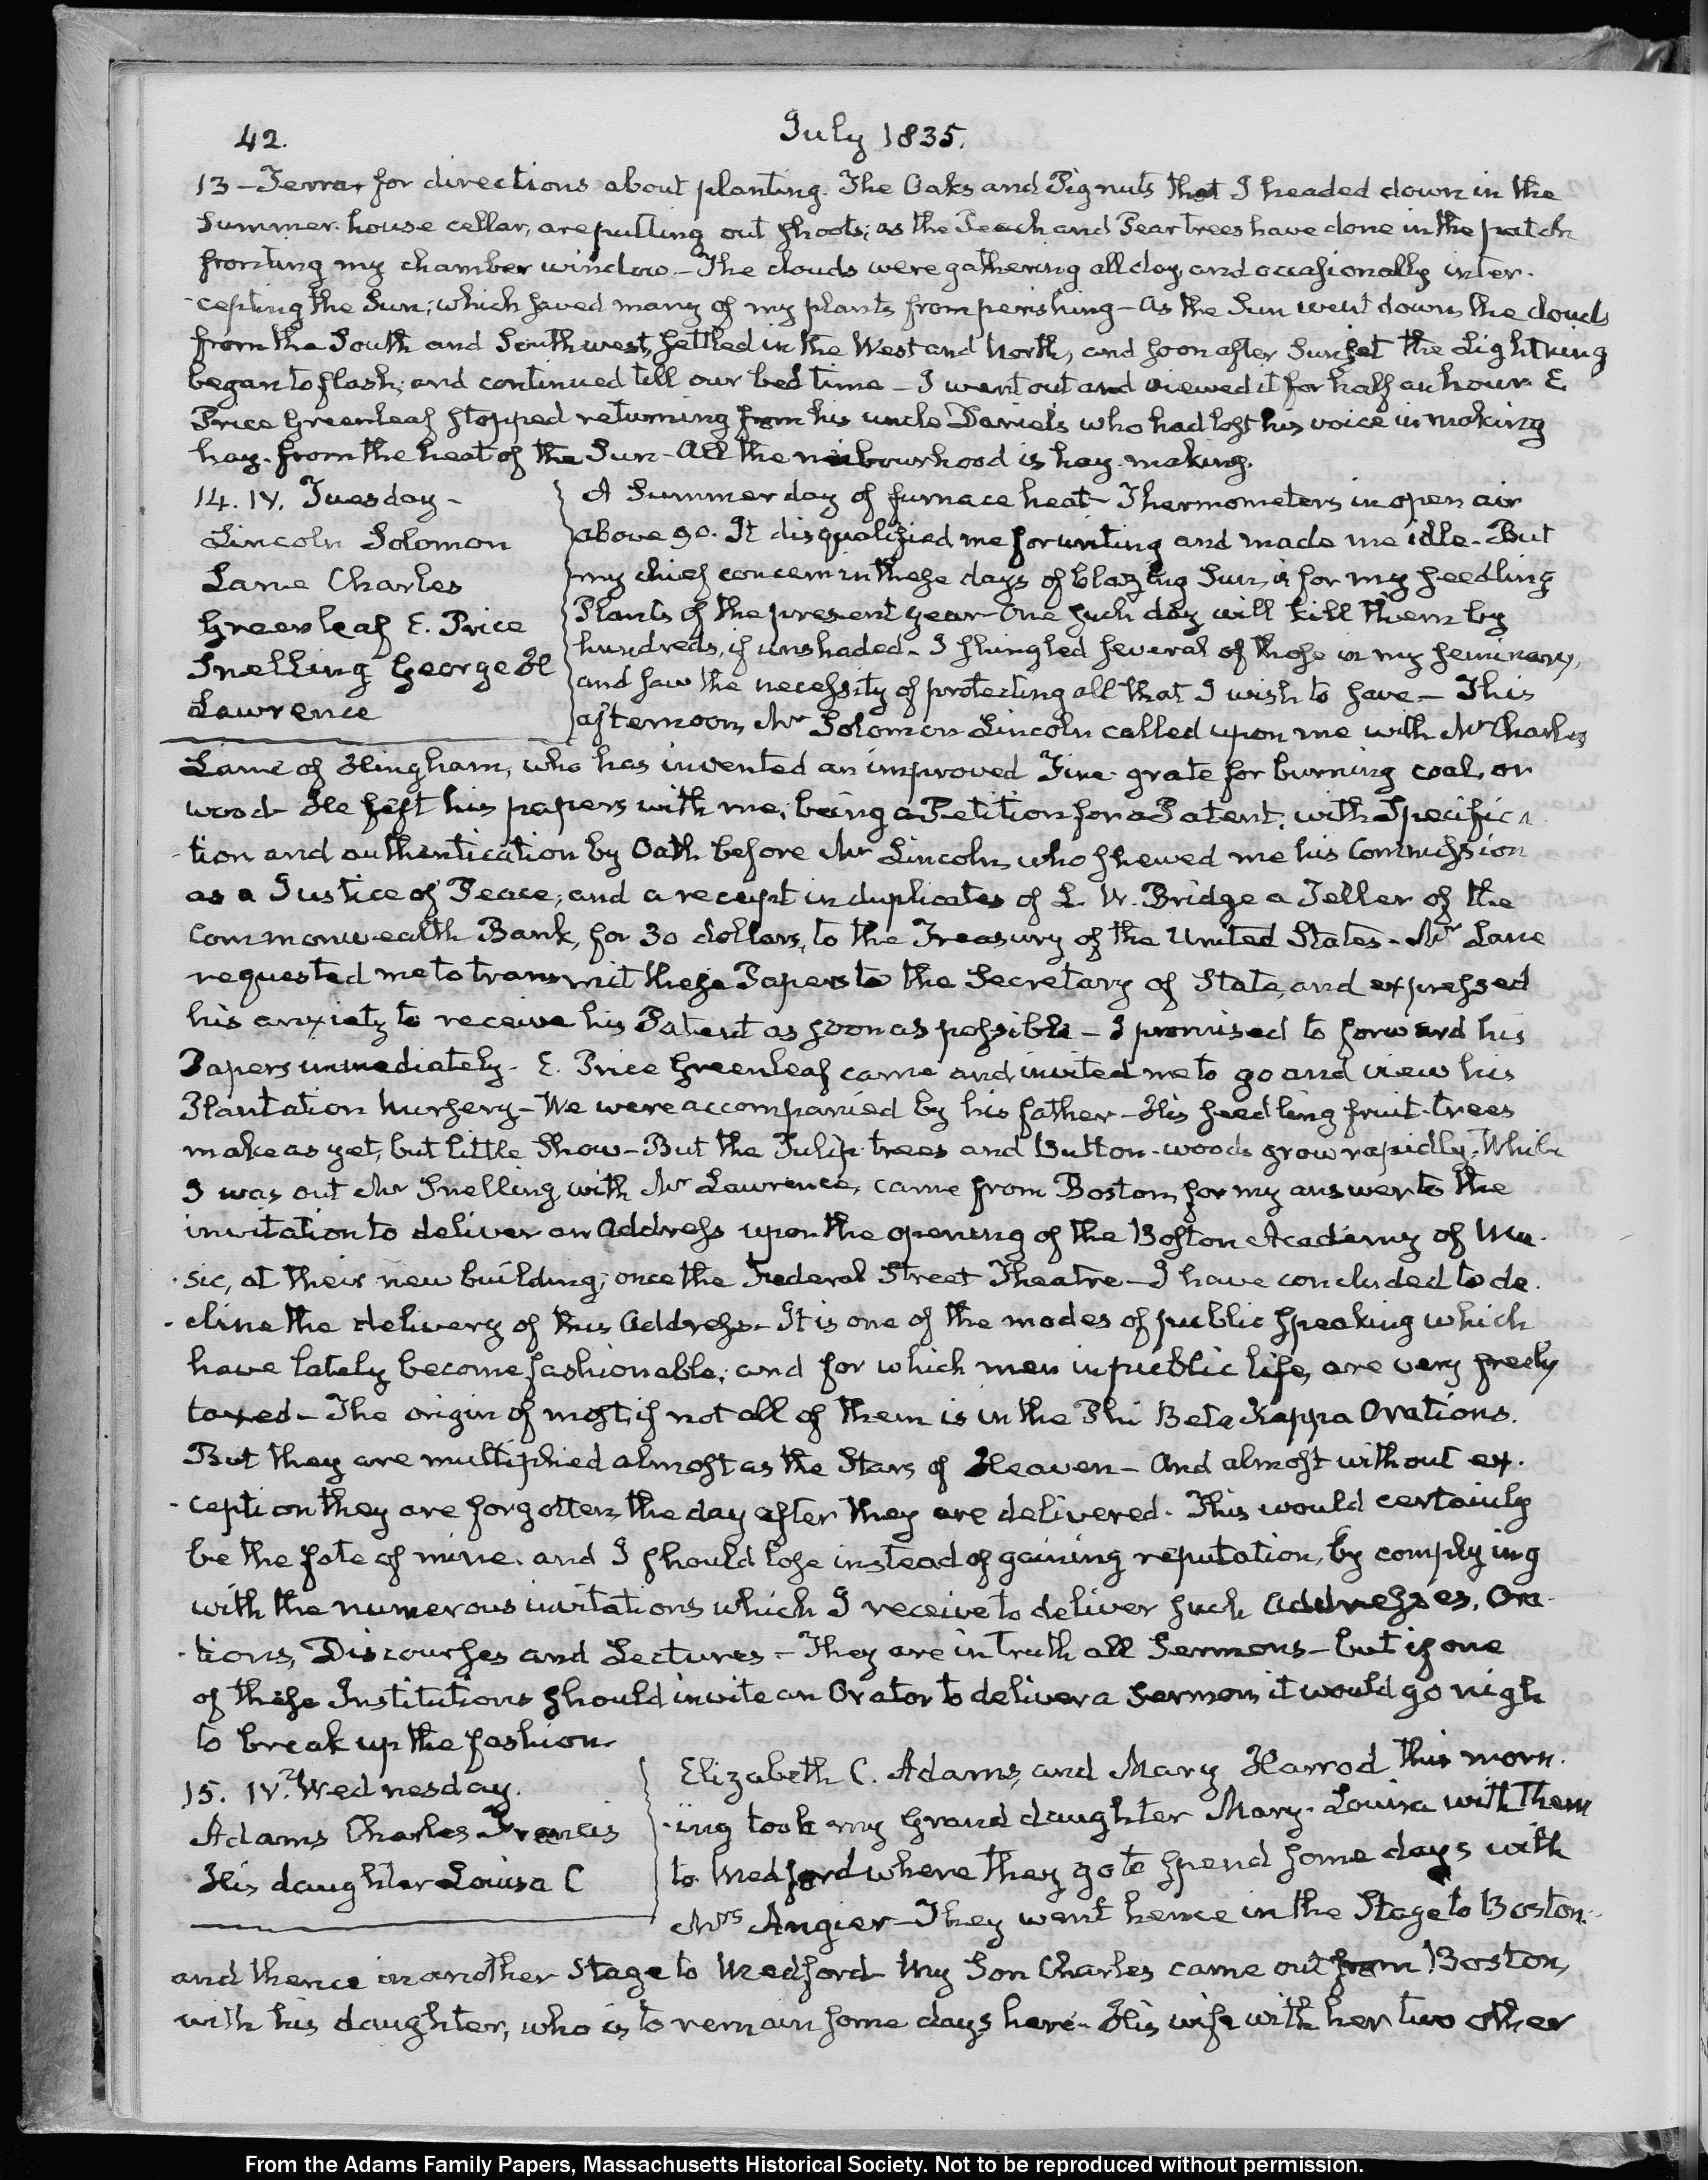 42.
July 1835.
13 - Terra, for directions about planting. The Oaks and Pignuts that I headed down in the
Summer-house cellar, are putting out shoots; as the Peach and Pear trees have done in the patch
fronting my chamber window - The clouds were gathering all day, and occasionally inter-
-cepting the Sun; which saved many of my plants from perishing - As the Sun went down, the clouds
from the South and Southwest, settled in the West and North, and soon after Sunset the Lightning
began to flash; and continued till our bed time - I went out and viewed it for half an hour. E.
Price Greenleaf stopped returning from his uncle Daniels who had lost his voice in making
hay, from the heat of the Sun - All the neibourhood is hay-making.
14. IV. Tuesday -
Lincoln Solomon
Lane Charles
Greenleaf E. Price
Snelling George H
Lawrence
A Summer day of furnace heat - Thermometers in open air
above 90. It disqualified me for writing and made me idle - But
my chief concern in these days of blazing Sun, is for my seedling
Plants of the present year - One such day will kill them by
hundreds, if unshaded - I shingled several of those in my seminary,
and saw the necessity of protecting all that I wish to save - This
afternoon, Mr Solomon Lincoln called upon me with Mr Charles
Lane of Hingham, who has invented an improved Fire-grate for burning coal, or
wood - He left his papers with me; being a Petition for a Patent, with Specifica
-tion and authentication by Oath before Mr Lincoln, who shewed me his Commission
as a Justice of Peace; and a receipt in duplicates of L. W. Bridge a Teller of the
Commonwealth Bank, for 30 dollars, to the Treasury of the United States - Mr Lane
requested me to transmit these Papers to the Secretary of State, and expressed
his anxiety to receive his Patent as soon as possible - I promised to forward his
Papers immediately - E. Price Greenleaf came and invited me to go and view his
Plantation Nursery - We were accompanied by his father - His seedling fruit-trees
make as yet, but little Show - But the Tulip-trees and Button-woods grow rapidly. While
I was out Mr Snelling, with Mr Lawrence, came from Boston, for my answer to the
invitation to deliver an Address upon the opening of the Boston Academy of Mu-
-sic, at their new building; once the Federal Street Theatre - I have concluded to de-
-cline the delivery of this Address - It is one of the modes of public speaking which
have lately become fashionable; and for which men in public life, are very freely
taxed - The origin of most, if not all of them is in the Phi Beta Kappa Orations.
But they are multiplied almost as the Stars of Heaven - And almost without ex-
-ception they are forgotten, the day after they are delivered. This would certainly
be the fate of mine, and I should lose instead of gaining reputation, by complying
with the numerous invitations which I receive to deliver such Addresses, Ora-
-tions, Discourses and Lectures - They are in truth all Sermons - but if one
of these Institutions should invite an Orator to deliver a Sermon, it would go nigh
to break up the fashion.
15. IV. Wednesday.
Adams Charles Francis
His daughter Louisa C
Elizabeth C. Adams, and Mary Harrod this morn-
-ing took my Grand daughter Mary-Louisa with them
to Medford where they go to spend some days with
Mrs Angier - They went hence in the Stage to Boston
and thence in another Stage to Medford - My Son Charles came out from Boston,
with his daughter, who is to remain some days here - His wife with her two other
From the Adams Family Papers, Massachusetts Historical Society. Not to be reproduced without permission.